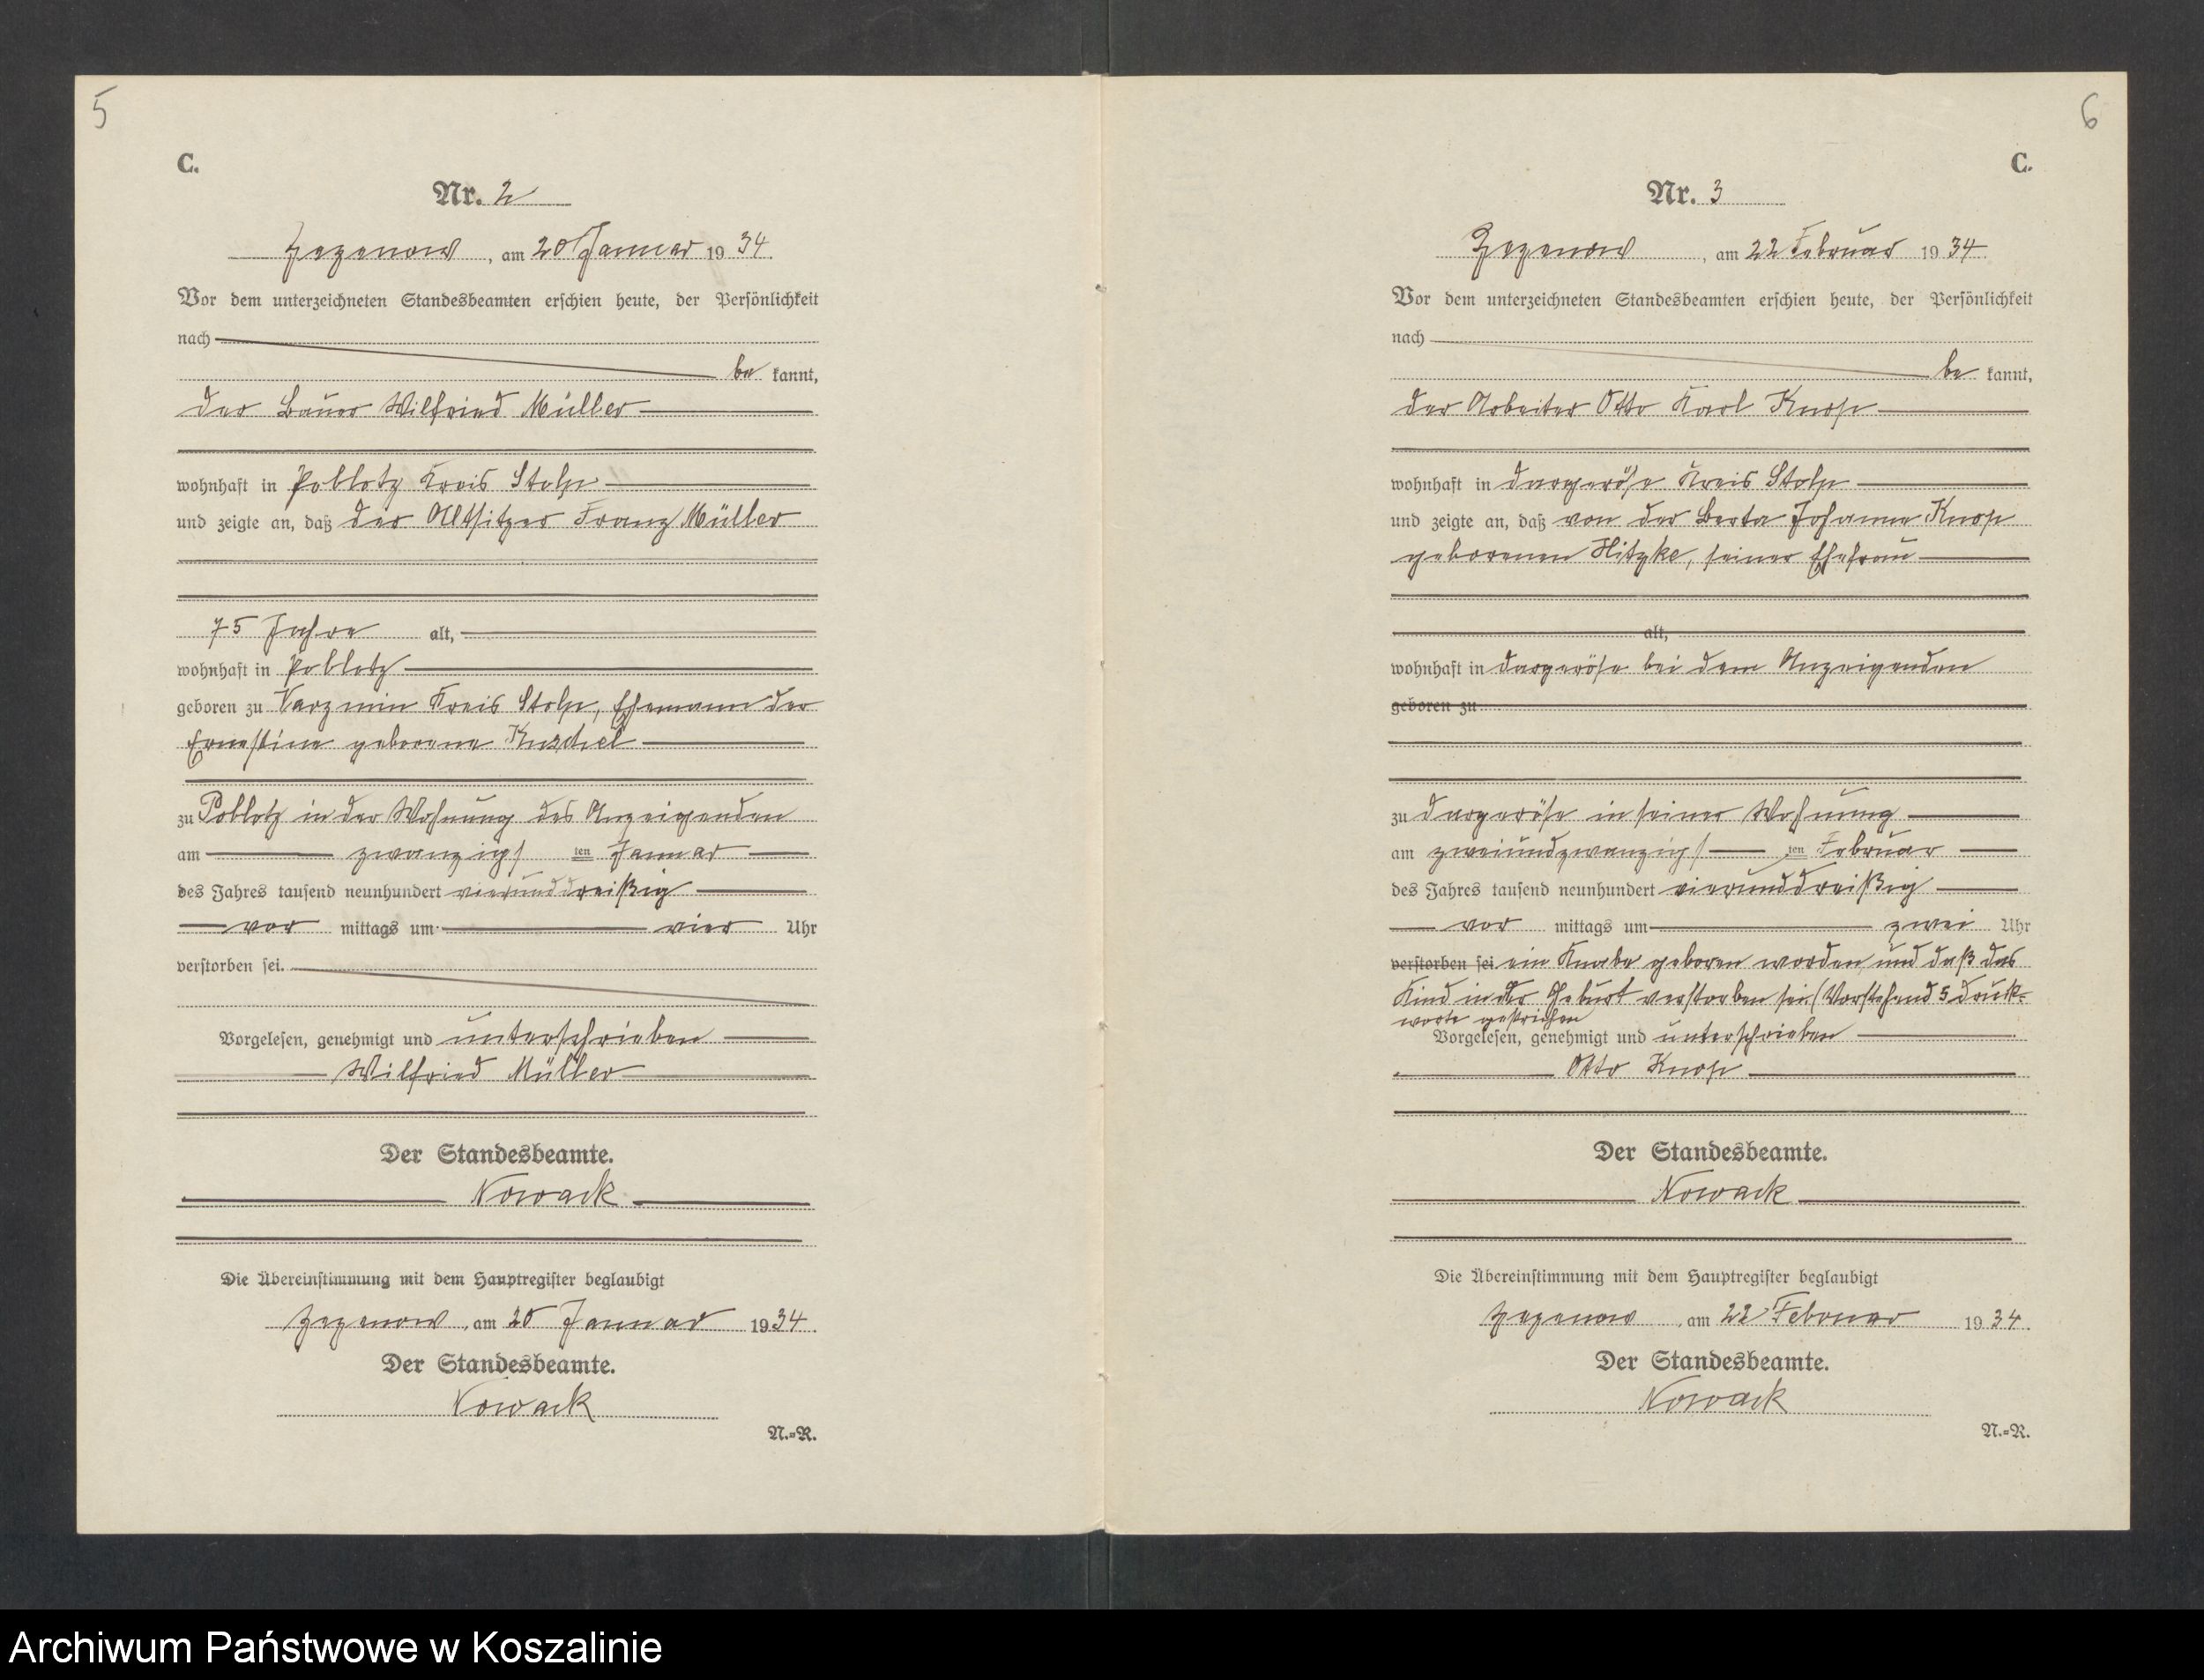 5
C.
Nr. 2
Zezenow, am 20 Januar 1934.
Vor dem unterzeichneten Standesbeamten erschien heute, der Persönlichkeit
nach
be kannt,
der Bauer Wilfried Müller
wohnhaft in Poblotz Kreis Stolp
und zeigte an, daß der Altsitzer Franz Müller
75 Jahre alt,
wohnhaft in Poblotz
geboren zu Varzmin Kreis Stolp, Ehemann der
Ernestine geborene Kuschel
zu Poblotz in der Wohnung des Anzeigenden
am zwanzigsten Januar
des Jahres tausend neunhundert vierunddreißig
vor mittags um vier Uhr
verstorben sei.
Vorgelesen, genehmigt und unterschrieben
Wilfried Müller
Der Standesbeamte.
Nowack
Die Übereinstimmung mit dem Hauptregister beglaubigt
Zezenow, am 20 Januar 1934.
Der Standesbeamte.
Nowack
N.=R.
6
C.
Nr. 3
Zezenow, am 22 Februar 1934.
Vor dem unterzeichneten Standesbeamten erschien heute, der Persönlichkeit
nach
be kannt,
der Arbeiter Otto Karl Knop
wohnhaft in Dargeröse Kreis Stolp
und zeigte an, daß von der Berta Johanna Knop
geborenen Hitzke, seiner Ehefrau
alt,
wohnhaft in Dargeröse bei dem Anzeigenden
geboren zu
zu Dargeröse in seiner Wohnung
am zweiundzwanzigsten Februar
des Jahres tausend neunhundert vierunddreißig
vor mittags um zwei Uhr
verstorben sei ein Knabe geboren worden und daß das
Kind in der Geburt verstorben sei. (Vorstehend 5 Druck=
worte gestrichen
Vorgelesen, genehmigt und unterschrieben
Otto Knop
Der Standesbeamte.
Nowack
Die Übereinstimmung mit dem Hauptregister beglaubigt
Zezenow, am 22 Februar 1934.
Der Standesbeamte.
Nowack
N.=R.
Archiwum Państwowe w Koszalinie